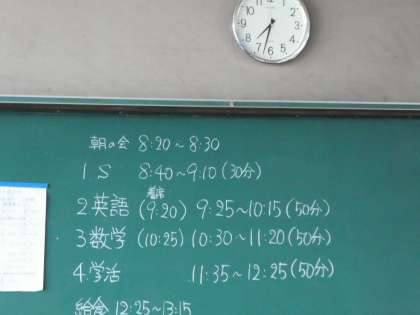 朝の会 8:20~8:30
1 S 8:40~9:10(30分)
着席
2 英語 (9:20) 9:25~10:15(50分)
3 数学 (10:25) 10:30~11:20(50分)
4 学活 11:35~12:25(50分)
給食 12:25~13:15